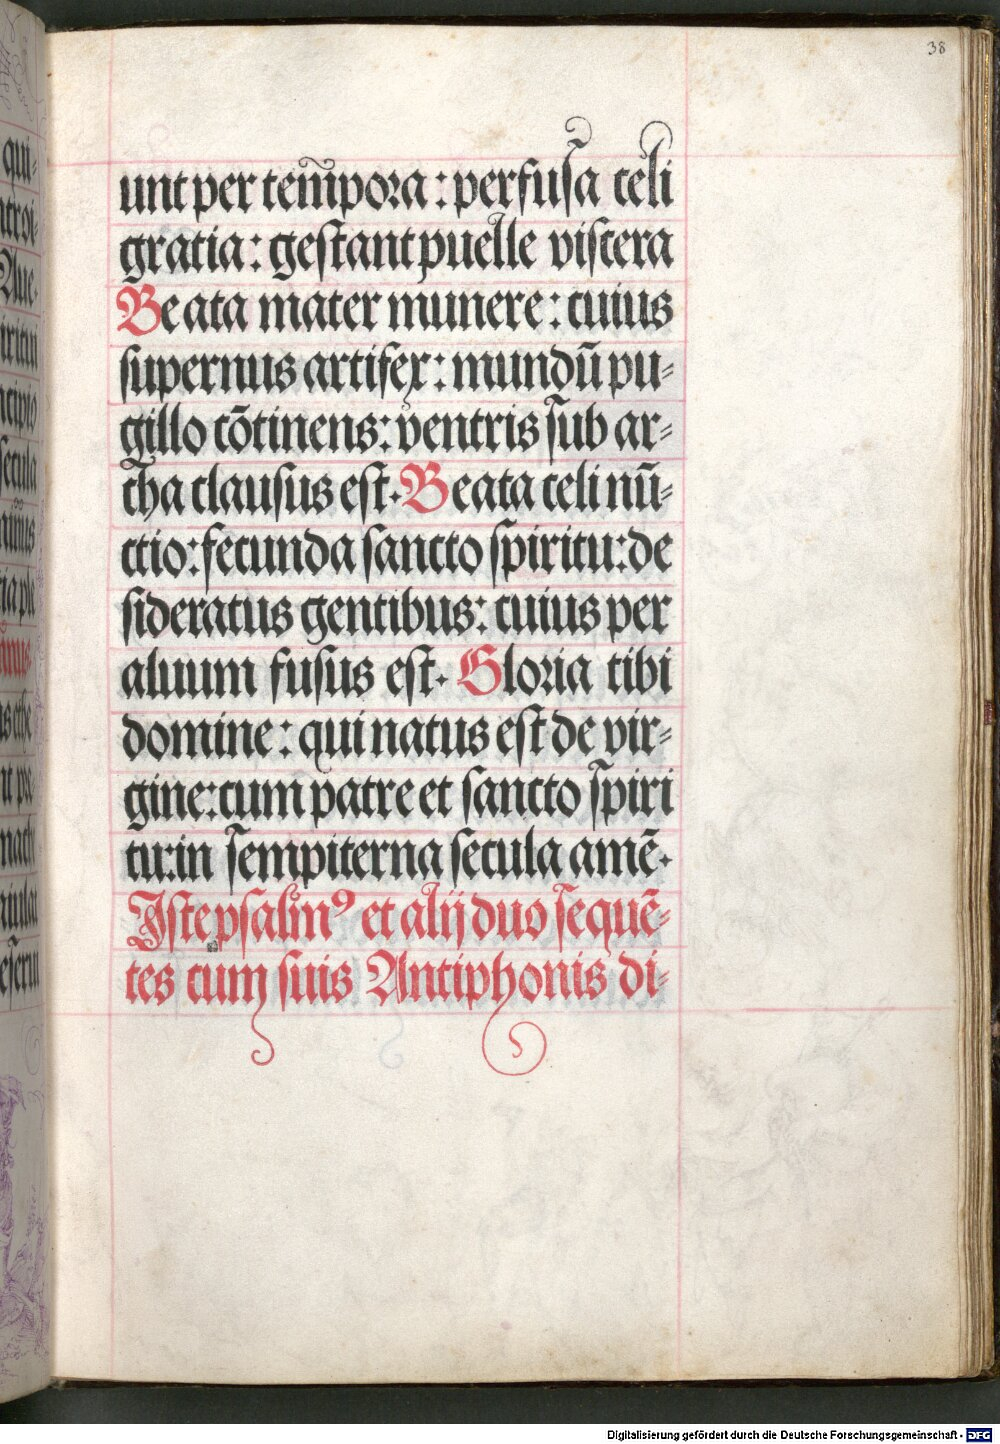 38
unt per tem̃pora : perfusa celi
gratia : gestant puelle viscera
Beata mater munere : cuius
supernus artifex : mundũ pu=
gillo cõtinens : ventris sub ar=
cha clausus est. Beata celi nũ=
ctio : fecunda sancto spiritu : de
sideratus gentibus : cuius per
aluum fusus est. Gloria tibi
domine : qui natus est de vir=
gine : cum patre et sancto spiri
tu : in sempiterna secula amẽ.
Iste psalmꝰ et alij duo sequẽ=
tes cum suis Antiphonis di=
Digitalisierung gefördert durch die Deutsche Forschungsgemeinschaft - DFG